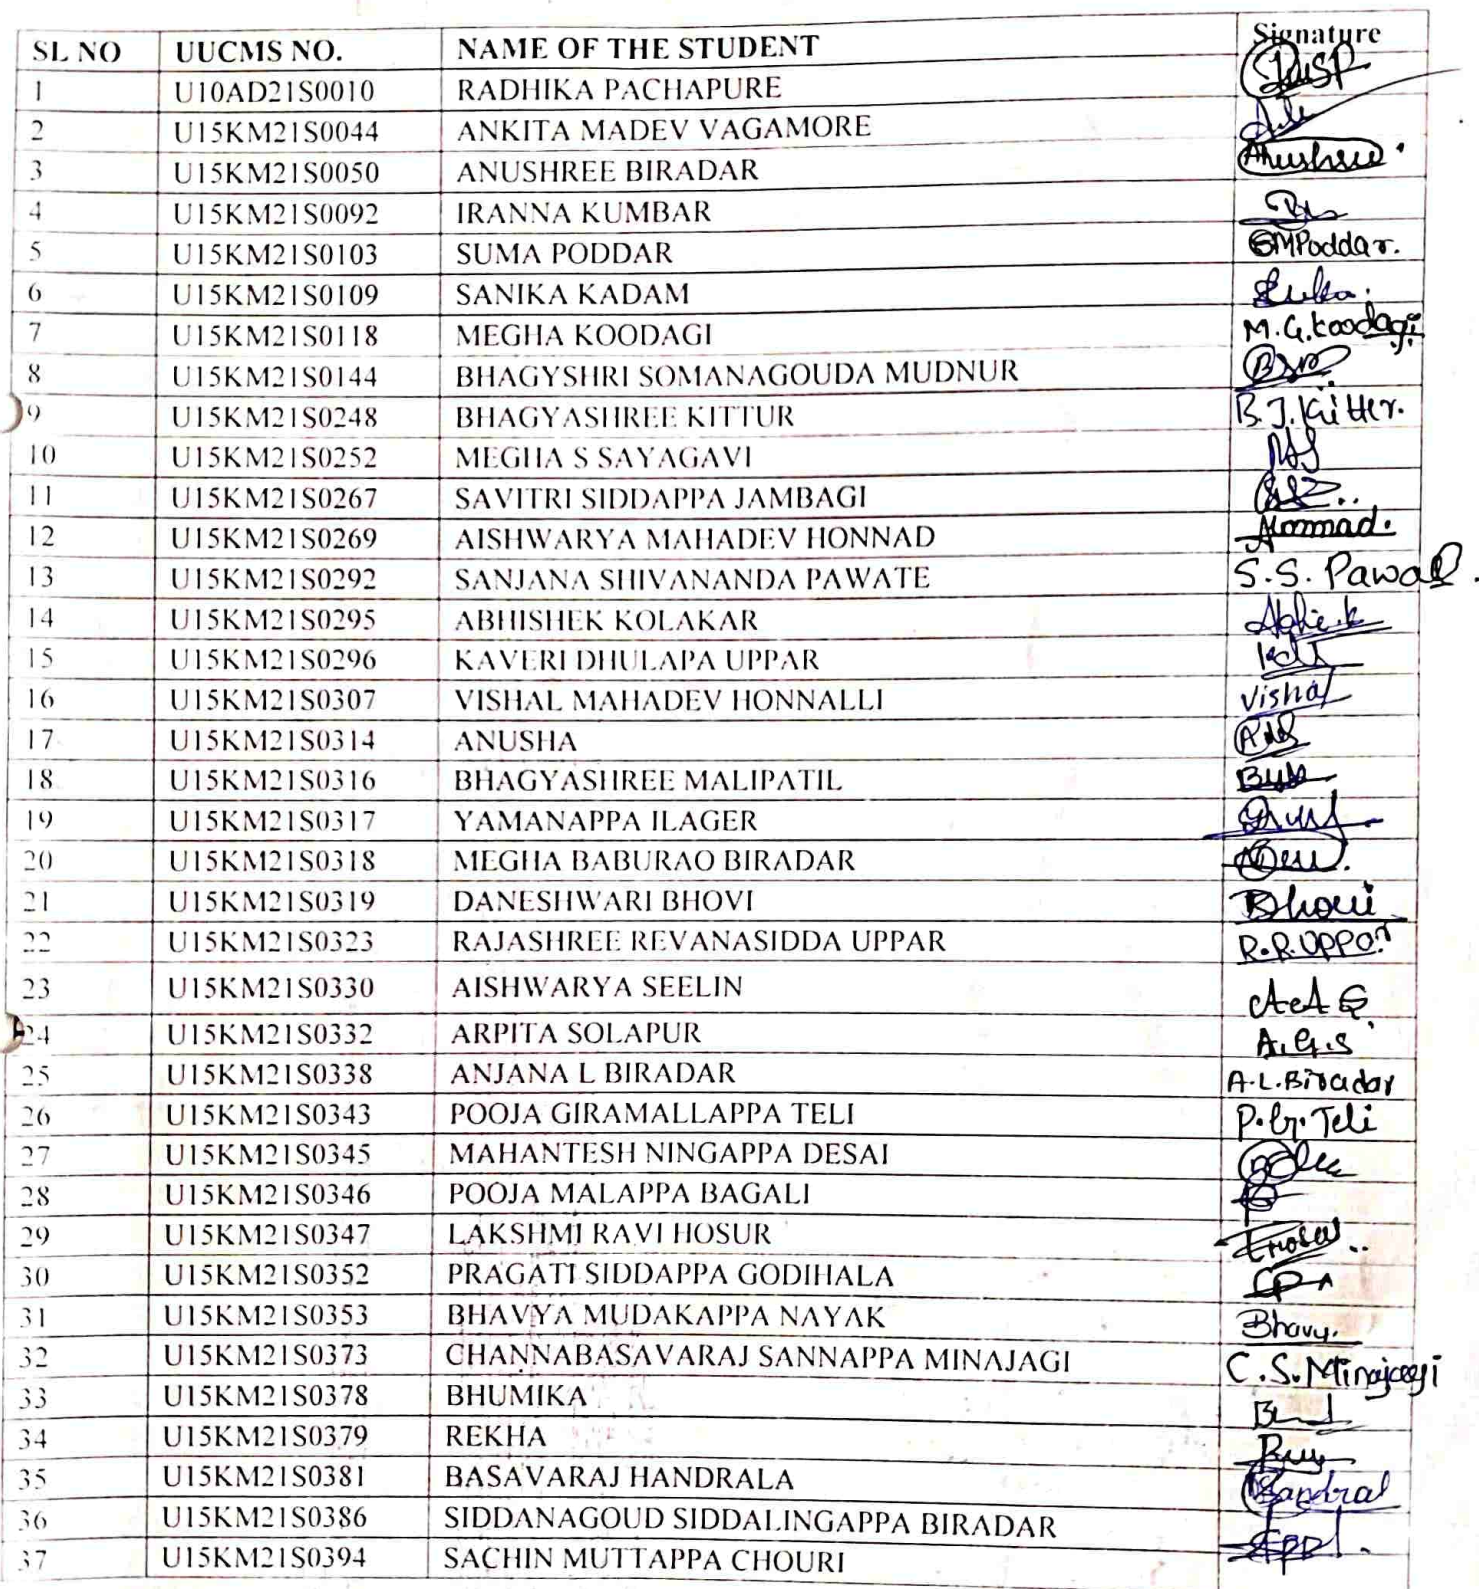 SL NO UUCMS NO. NAME OF THE STUDENT Signature
1 U10AD21S0010 RADHIKA PACHAPURE
2 U15KM21S0044 ANKITA MADEV VAGAMORE
3 U15KM21S0050 ANUSHREE BIRADAR Anushree.
4 U15KM21S0092 IRANNA KUMBAR
5 U15KM21S0103 SUMA PODDAR SMPoddar.
6 U15KM21S0109 SANIKA KADAM
7 U15KM21S0118 MEGHA KOODAGI M.G.Koodagi
8 U15KM21S0144 BHAGYSHRI SOMANAGOUDA MUDNUR
9 U15KM21S0248 BHAGYASHREE KITTUR B.J.Kitter.
10 U15KM21S0252 MEGHA S SAYAGAVI
11 U15KM21S0267 SAVITRI SIDDAPPA JAMBAGI
12 U15KM21S0269 AISHWARYA MAHADEV HONNAD
13 U15KM21S0292 SANJANA SHIVANANDA PAWATE S.S.
14 U15KM21S0295 ABHISHEK KOLAKAR
15 U15KM21S0296 KAVERI DHULAPA UPPAR
16 U15KM21S0307 VISHAL MAHADEV HONNALLI Vishal
17 U15KM21S0314 ANUSHA
18 U15KM21S0316 BHAGYASHREE MALIPATIL
19 U15KM21S0317 YAMANAPPA ILAGER
20 U15KM21S0318 MEGHA BABURAO BIRADAR
21 U15KM21S0319 DANESHWARI BHOVI Bhovi
22 U15KM21S0323 RAJASHREE REVANASIDDA UPPAR R.R.UPPar
23 U15KM21S0330 AISHWARYA SEELIN
24 U15KM21S0332 ARPITA SOLAPUR A.G.S
25 U15KM21S0338 ANJANA L BIRADAR A.L.Biradar
26 U15KM21S0343 POOJA GIRAMALLAPPA TELI P.G.Teli
27 U15KM21S0345 MAHANTESH NINGAPPA DESAI
28 U15KM21S0346 POOJA MALAPPA BAGALI
29 U15KM21S0347 LAKSHMI RAVI HOSUR
30 U15KM21S0352 PRAGATI SIDDAPPA GODIHALA
31 U15KM21S0353 BHAVYA MUDAKAPPA NAYAK Bhavy.
32 U15KM21S0373 CHANNABASAVARAJ SANNAPPA MINAJAGI C.S.Minajagi
33 U15KM21S0378 BHUMIKA
34 U15KM21S0379 REKHA
35 U15KM21S0381 BASAVARAJ HANDRALA
36 U15KM21S0386 SIDDANAGOUD SIDDALINGAPPA BIRADAR
37 U15KM21S0394 SACHIN MUTTAPPA CHOURI